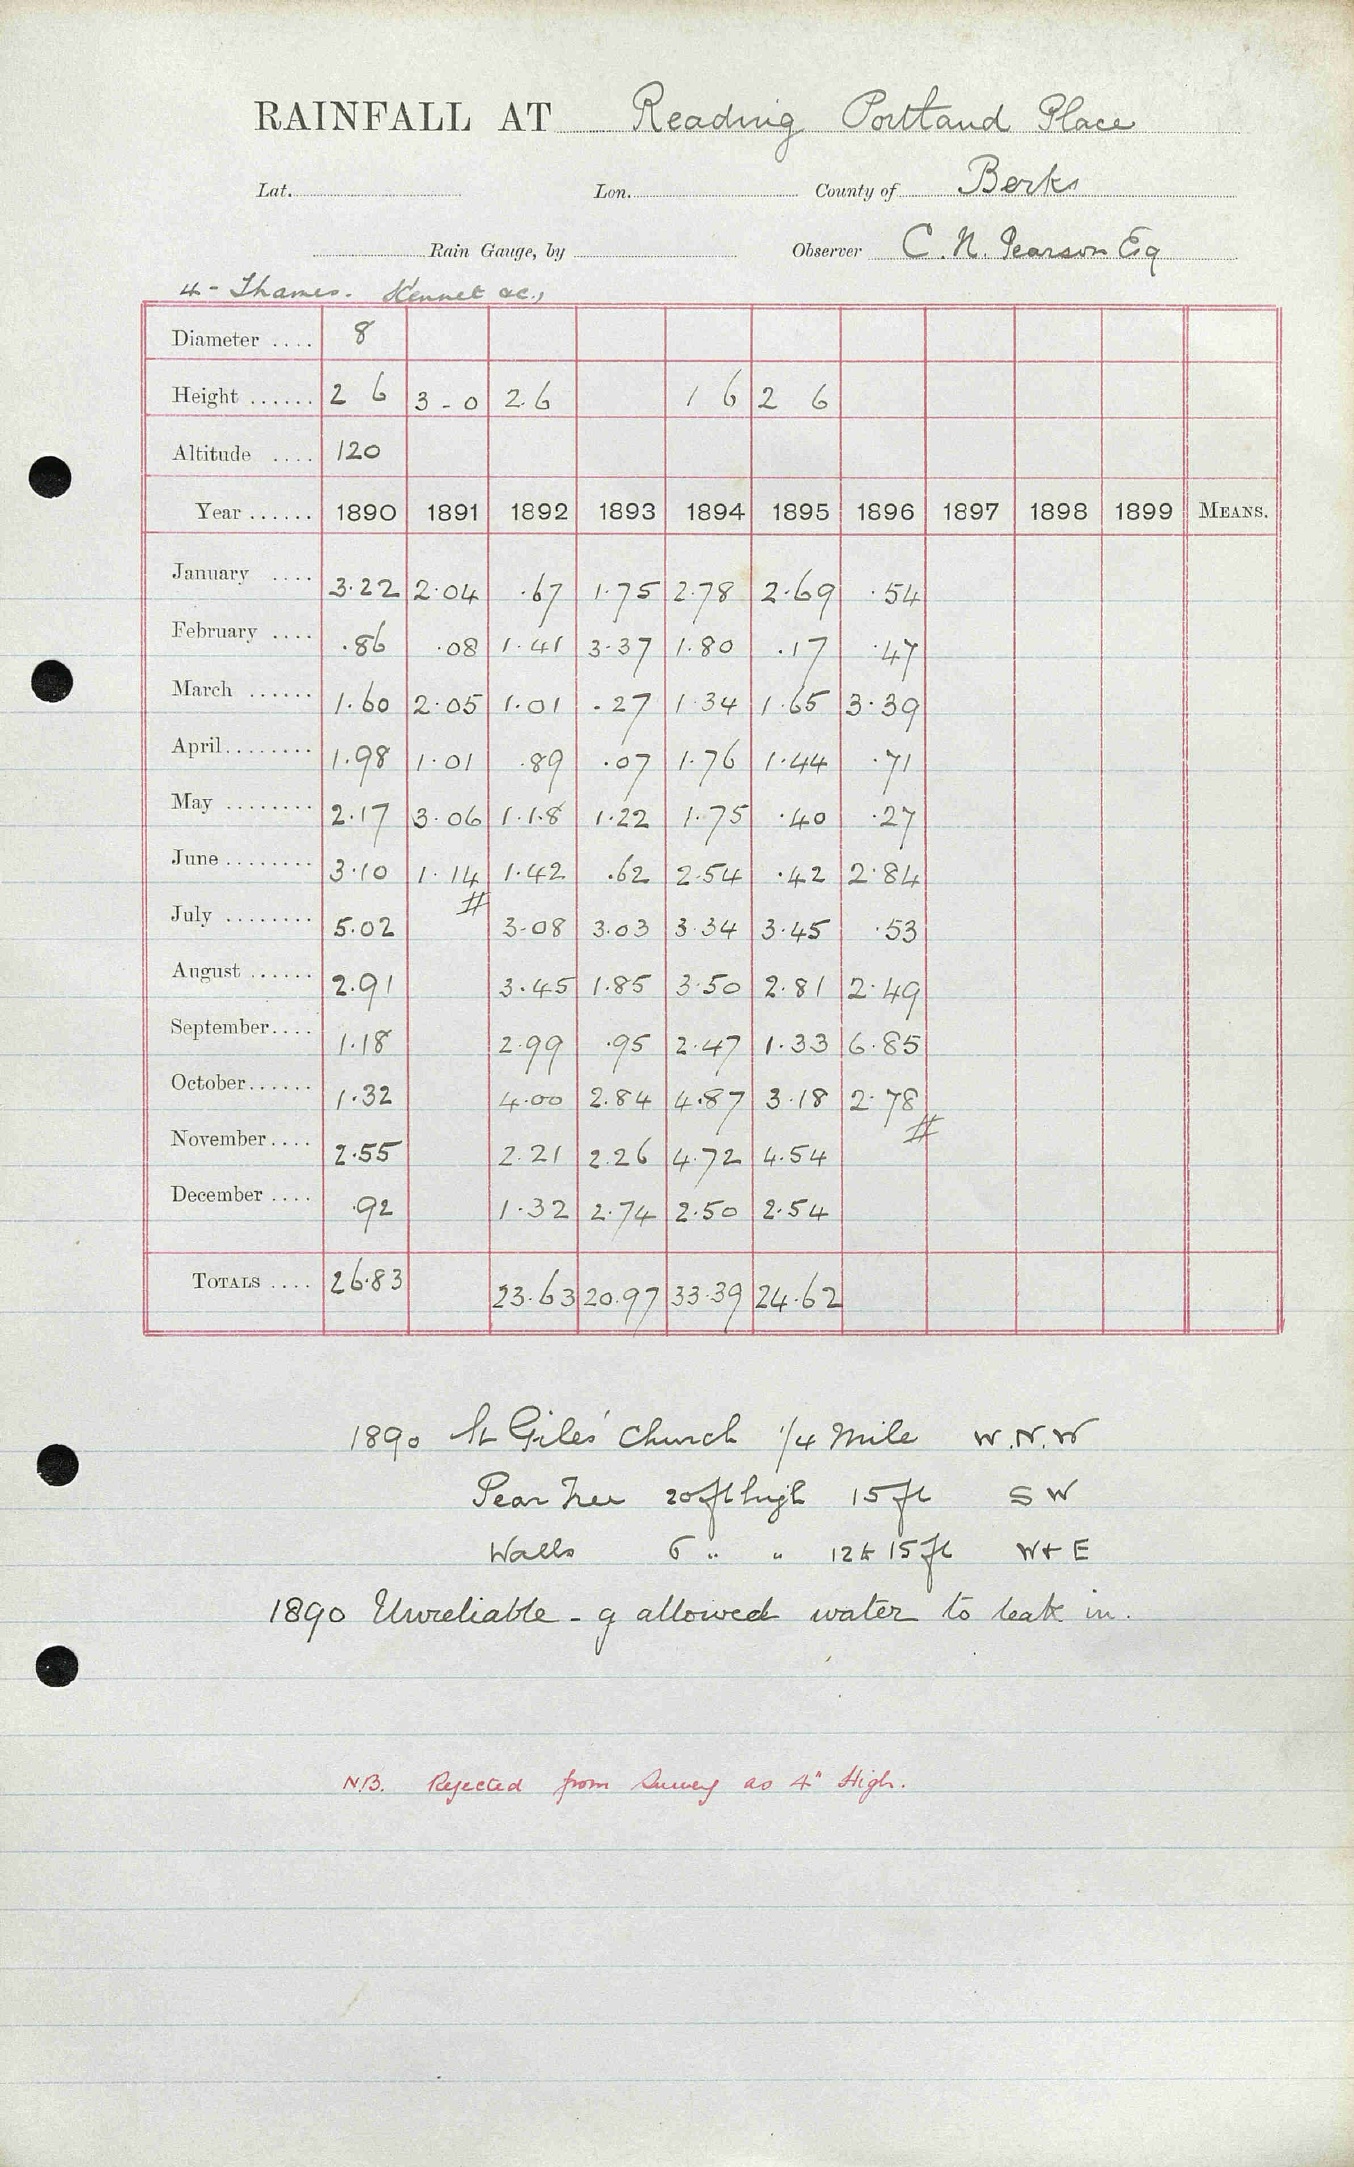 RAINFALL AT Reading Portland Place
Lat. Lon. County of Berks
Rain Gauge, by Observer C. N. Pearson Esq
4 - Thames. Kennet &c.,
Diameter .... 8
Height ...... 2 6 3 - 0 2 6 1 6 2 6
Altitude .... 120
Year ...... 1890 1891 1892 1893 1894 1895 1896 1897 1898 1899 MEANS.
January .... 3.22 2.04 .67 1.75 2.78 2.69 .54
February .... .86 .08 1.41 3.37 1.80 .17 .47
March ...... 1.60 2.05 1.01 .27 1.34 1.65 3.39
April........ 1.98 1.01 .89 .07 1.76 1.44 .71
May ........ 2.17 3.06 1.18 1.22 1.75 .40 .27
June ........ 3.10 1.14 1.42 .62 2.54 .42 2.84
#
July ........ 5.02 3.08 3.03 3.34 3.45 .53
August ...... 2.91 3.45 1.85 3.50 2.81 2.49
September.... 1.18 2.99 .95 2.47 1.33 6.85
October...... 1.32 4.00 2.84 4.87 3.18 2.78
#
November.... 2.55 2.21 2.26 4.72 4.54
December .... .92 1.32 2.74 2.50 2.54
TOTALS .... 26.83 23.63 20.97 33.39 24.62
1890 St Giles' Church 1/4 Mile W.N.W
Pear Tree 20 ft high 15 ft S W
Walls 6 " " 12 to 15 ft W + E
1890 Unreliable - g allowed water to leak in.
N.B. Rejected from Survey as 4" High.